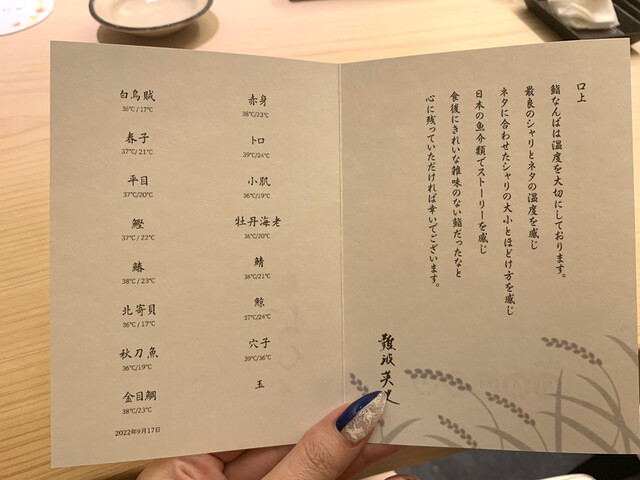 白烏賊
36℃/ 17℃
春子
37℃/ 21℃
平目
37℃/20℃
鰹
37℃ / 22℃
鰆
38℃ / 23℃
北寄貝
36℃ / 17℃
秋刀魚
36℃/19℃
金目鯛
38℃/23℃
2022年9月17日
赤身
38℃/23℃
トロ
39℃/24℃
小肌
36℃/19℃
牡丹海老
36℃/20℃
鯖
36℃/21℃
鯨
37℃/24℃
穴子
39℃/36℃
玉
口上
鮨なんばは温度を大切にしております。
最良のシャリとネタの温度を感じ
ネタに合わせたシャリの大小とほどけ方を感じ
日本の魚介類でストーリーを感じ
食後にきれいな雑味のない鮨だったなと
心に残っていただければ幸いでございます。
難波英史